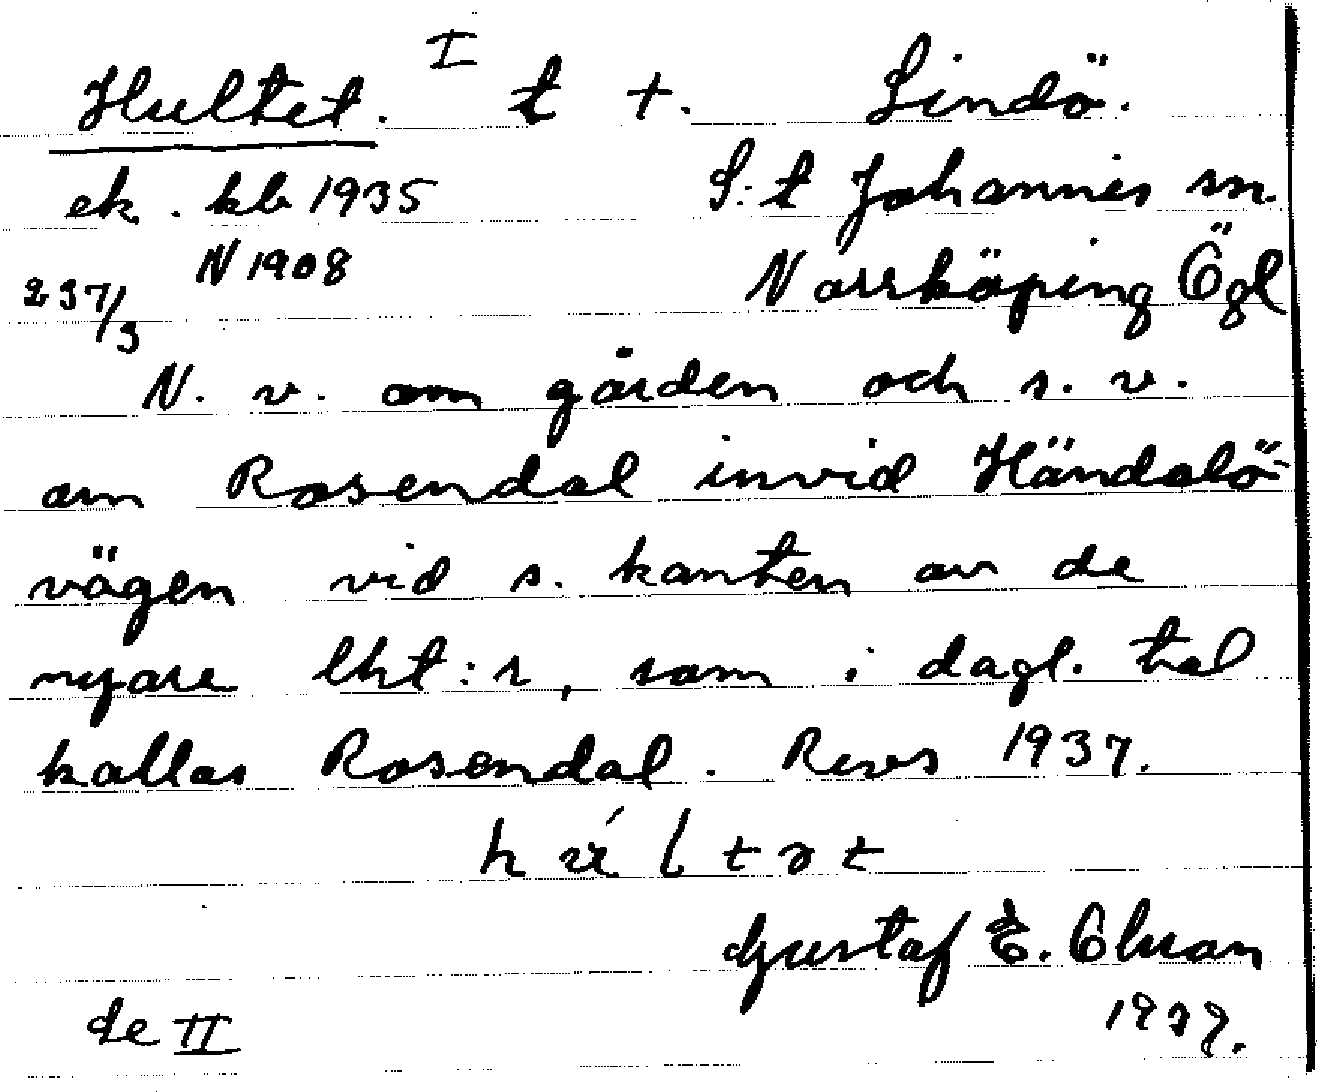 Hultet. I t +. Lindö.
ek. kb 1935 S:t Johannes sn.
N 1908 Norrköping Ögl
237/3
N. v. om gården och s. v.
om Rosendal invid Händelö-
vägen vid s. kanten av de
nyare lht:r, som i dagl. tal
kallas Rosendal. Revs 1937.
Gustaf E. Olsson
de II 1937.